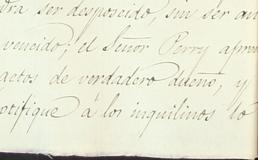 dra ser desposeido, sin ser an
vencido; el Señor Perry apre
actos de verdadero dueño, y
otifique á los inquilinos lo